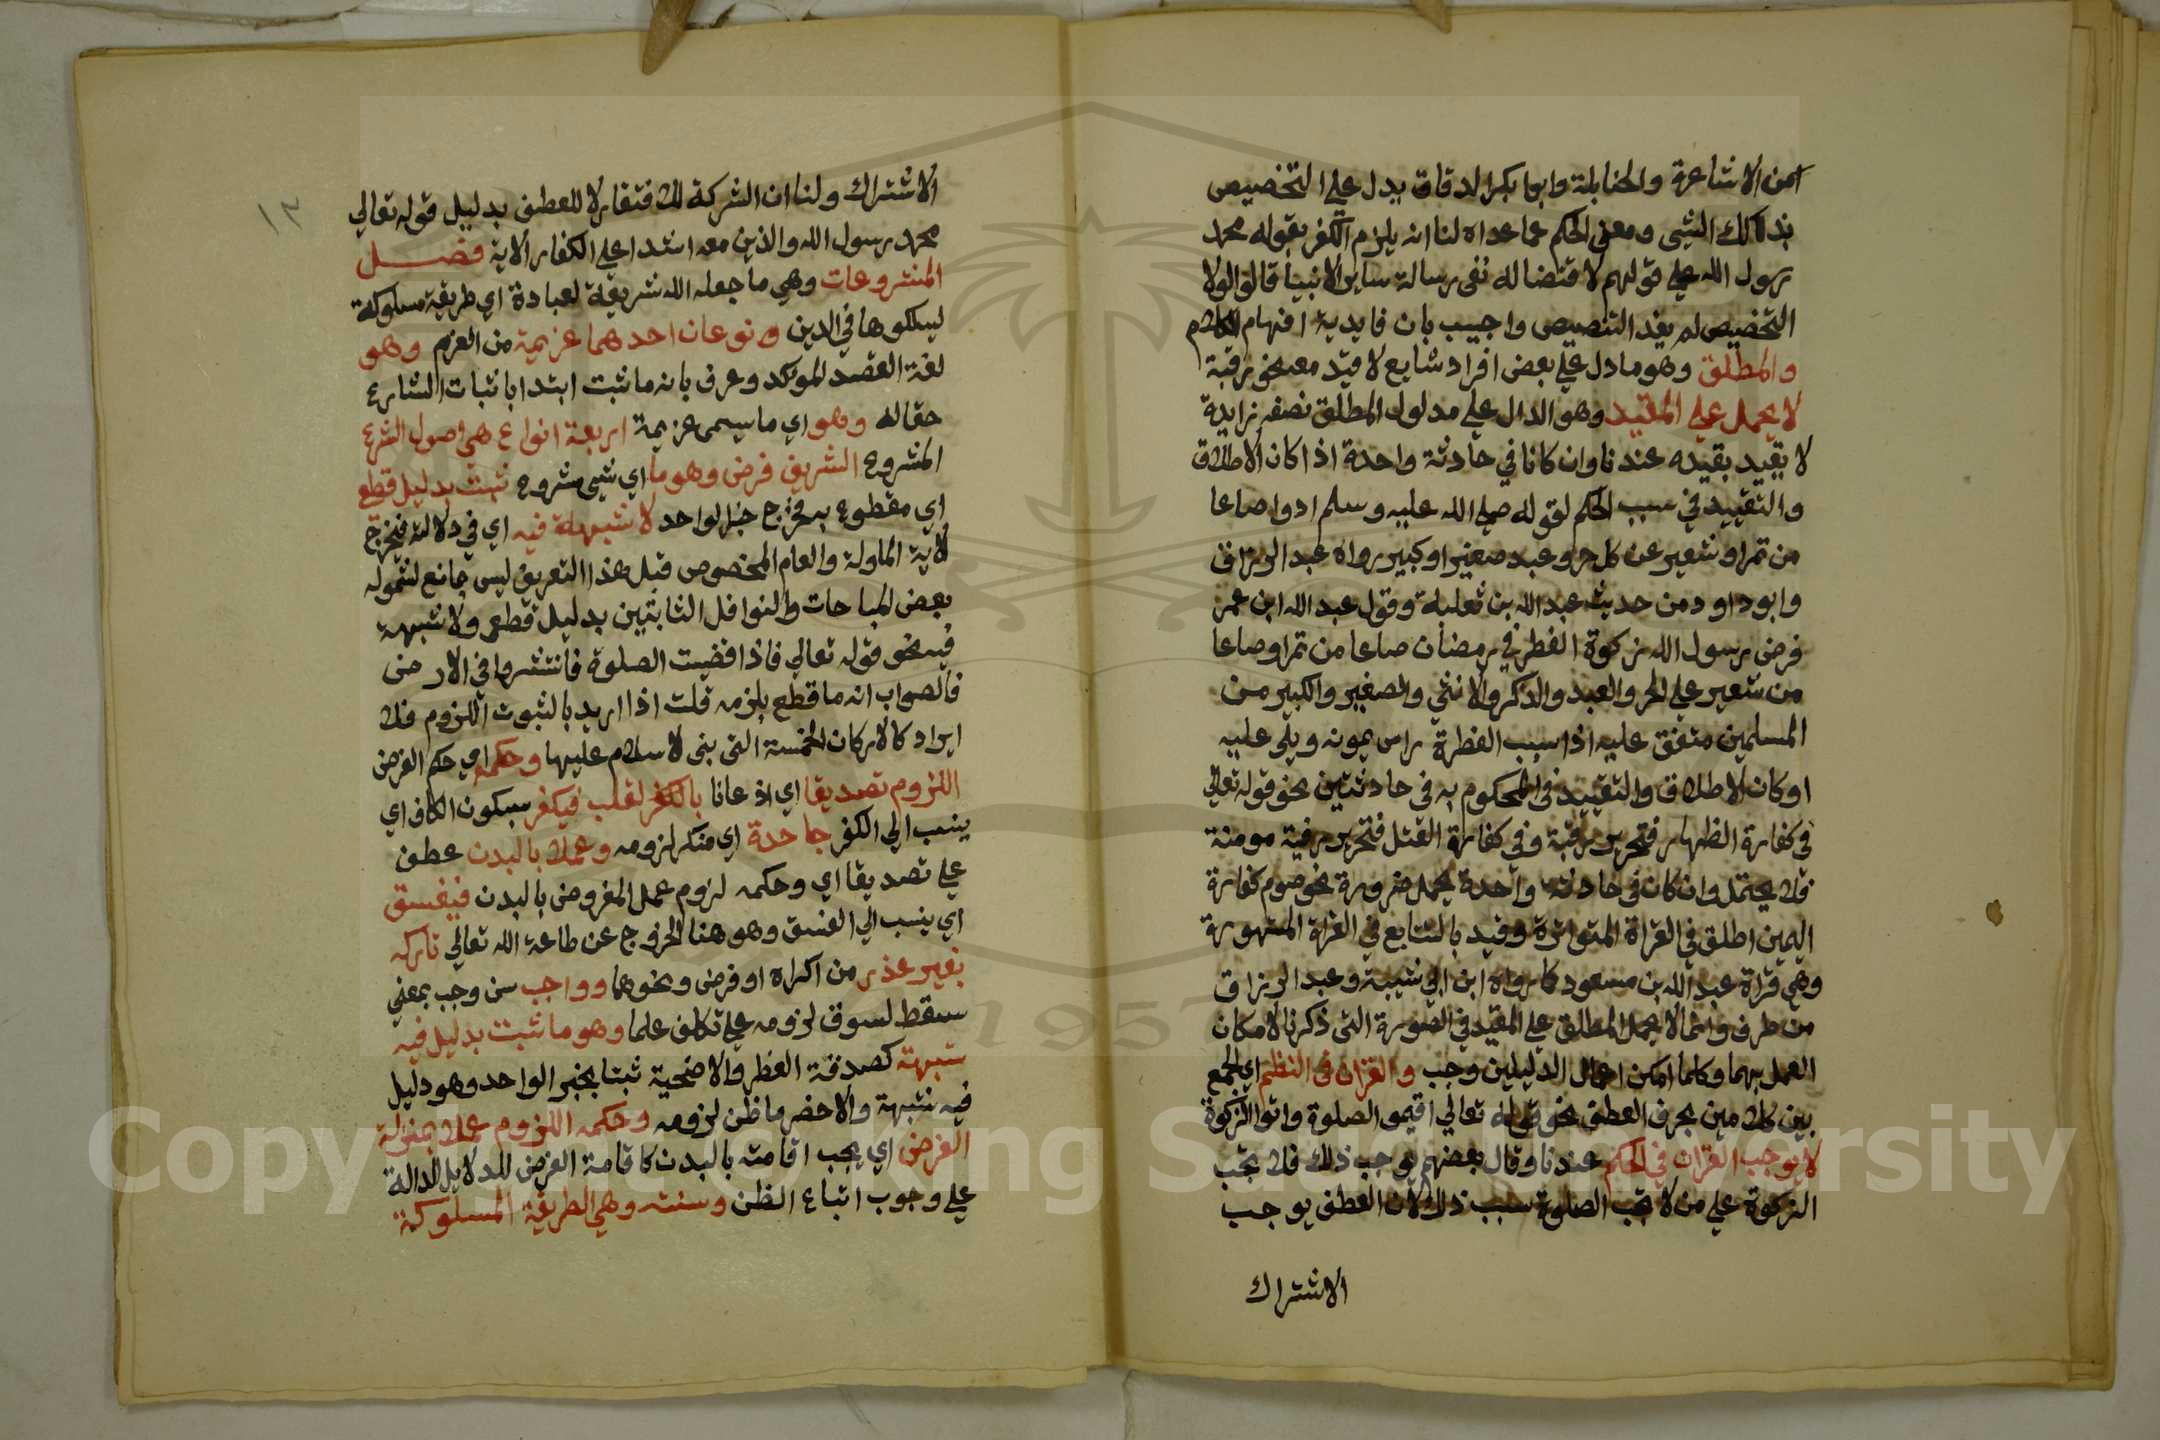 من الاشاعرة والحنابلة وابو بكر الدقاق يدل علي التخصيص
بذالك الشي ومعني الحكم عما عداه لنا انه يلزم الكفر بقوله محمد
رسول الله علي قولهم لاقتضاله نفي رسالة ساير الانبيا قالوا لولا
التخصيص لم يفد التنصيص واجيب بان فايدية افهام الكلام
والمطلق وهو مادل علي بعض افراد شايع لا قيد معه نحو رقبة
لا يحمل علي المقيد وهو الدال علي مدلول المطلق بصفه زايدة
لا يقيد بقيده عندنا وان كانا في حادثة واحدة اذا كان الاطلاق
والتقييد في سبب الحكم لقوله صلي الله عليه وسلم ادوا صاعا
من تمر او شعير عن كل حر وعبد صغير او كبير رواه عبد الرزاق
وابو داود من حديث عبد الله بن ثعلبة وقول عبد الله ابن عمر
فرض رسول الله زكوة الفطر في رمضان صاعا من تمر او صاعا
من شعير علي الحر والعبد والذكر والانثي والصغير والكبير من
المسلمين متفق عليه اذا سبب الفطرة راس يمونه ويلي عليه
او كان الاطلاق والتقييد في المحكوم به في حادثتين نحو قوله تعالي
في كفارة الظهار فتحرير رقبة وفي كفارة القتل فتحرير رقبة مومنة
فلا يحتمل وان كان في حادثة واحدة يحمل ضرورة نحو صوم كفارة
اليمين اطلق في القراة المتواترة وقيد بالتتابع في القراة المشهورة
وهي قراة عبد الله بن مسعود كما رواه ابن ابي شيبة وعبد الرزاق
من طرف وانما لا يحمل المطلق علي المقيد في الصورة التي ذكرنا لامكان
العمل بهما وكلما امكن اعمال الدليلين وجب والقران في النظم اي الجمع
بين كلامين بحرف العطف نحو قوله تعالي اقيمو الصلوة واتوا الزكوة
لا يوجب القران في الحكم عندنا وقال بعضهم يوجب ذلك فلا تجب
الزكوة علي من لا تجب الصلوة سبب ذلك لان العطف يوجب
الاشتراك
١٣
الاشتراك ولنا ان الشركة للافتقار لا للعطف بدليل قوله تعالي
محمد رسول الله والذين معه اشدا علي الكفار الاية فصل
المشروعات وهي ما جعله الله شريعة لعبادة اي طريقة مسلوكة
ليسلكوها في الدين ونوعان احدهما عزيمة من العزم وهو
لغة القصد الموكد وعرف بانه ما ثبت ابتدا باثبات الشارع
حقاله وهو اي ما يسمي عزيمة اربعة انواع هي اصول الشرع
المشروع الشريف فرض وهو ما اي شي مشروع ثبت بدليل قطع
اي مقطوع به فخرج خبر الواحد لا شبهة فيه اي في دلالته فيخرج
لاية الماولة والعام المخصوص قيل هذا التعريف ليس جامع لشموله
بعض المباحات والنوافل الثابتين بدليل قطعي ولا شبهة
فيه نحو قوله تعالي فاذا قضيت الصلوة فانتشروا في الارض
فالصواب انه ما قطع بلزمه قلت اذا اريد بالثبوت اللزوم فلا
ايراد كالاركان الخمسة التي بني لاسلام عليها وحكمه اي حكم الفرض
اللزوم تصديقا اي اذعانا بالقلب فيكفر بسكون الكاف اي
ينسب الي الكفر جاحدة اي منكر لزومه وعملا بالبدن عطف
علي تصديقا اي وحكمه لزوم عمل المفروض بالبدن فيفسق
اي ينسب الي الفسق وهو هنا الخروج عن طاعة الله تعالي تاركه
بغير عذر من اكراه او فرض ونحوهما وواجب من وجب بمعني
سقط لسوق لزومه علي تكلف علما وهو ما ثبت بدليل فيه
شبهة كصدقة الفطر والاضحية ثبتا بخبر الواحد وهو دليل
فيه شبهة والاحضر ما ظن لزومه وحكمه اللزوم عملا بمنزلة
الفرض اي يجب اقامته بالبدن كاقامة الفرض للدلايل الدالة
علي وجوب اتباع الظن وسنته وهي الطريقة المسلوكة
Copyright © King Saud University
1957